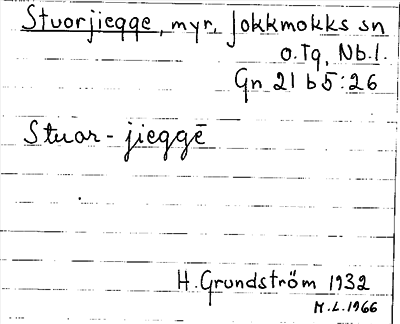 Stuorjiegge, myr, Jokkmokks sn
o.Tg, Nb.l.
Gn 21 b 5:26
Stuor-jieggē
H. Grundström 1932
M.L.1966